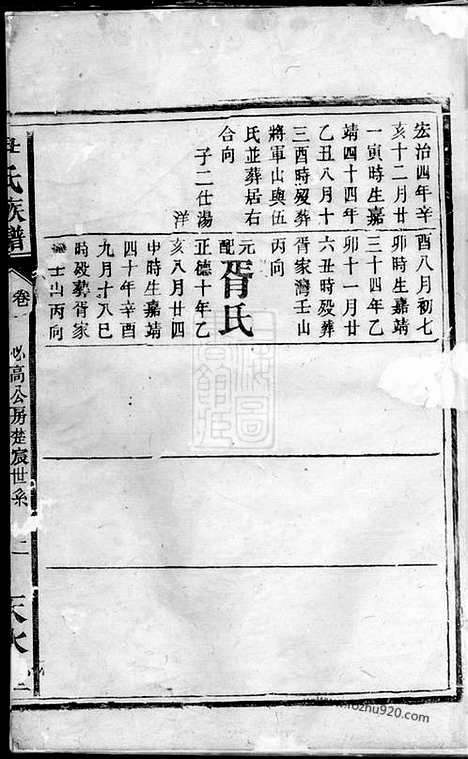 宏治四年辛
亥十二月廿
一寅時生嘉
靖四十四年
乙丑八月十
三酉時殁葬
將軍山與伍
氏並葬居右
合向
子二仕湯
洋
酉八月初七
卯時生嘉靖
三十四年乙
卯十一月廿
六丑時殁葬
胥家灣壬山
丙向
元配胥氏
正德十年乙
亥八月廿四
申時生嘉靖
四十年辛酉
九月十八巳
時殁葬胥家
壬山丙向
氏族譜
卷
必高公房楚宸世系
二
天水